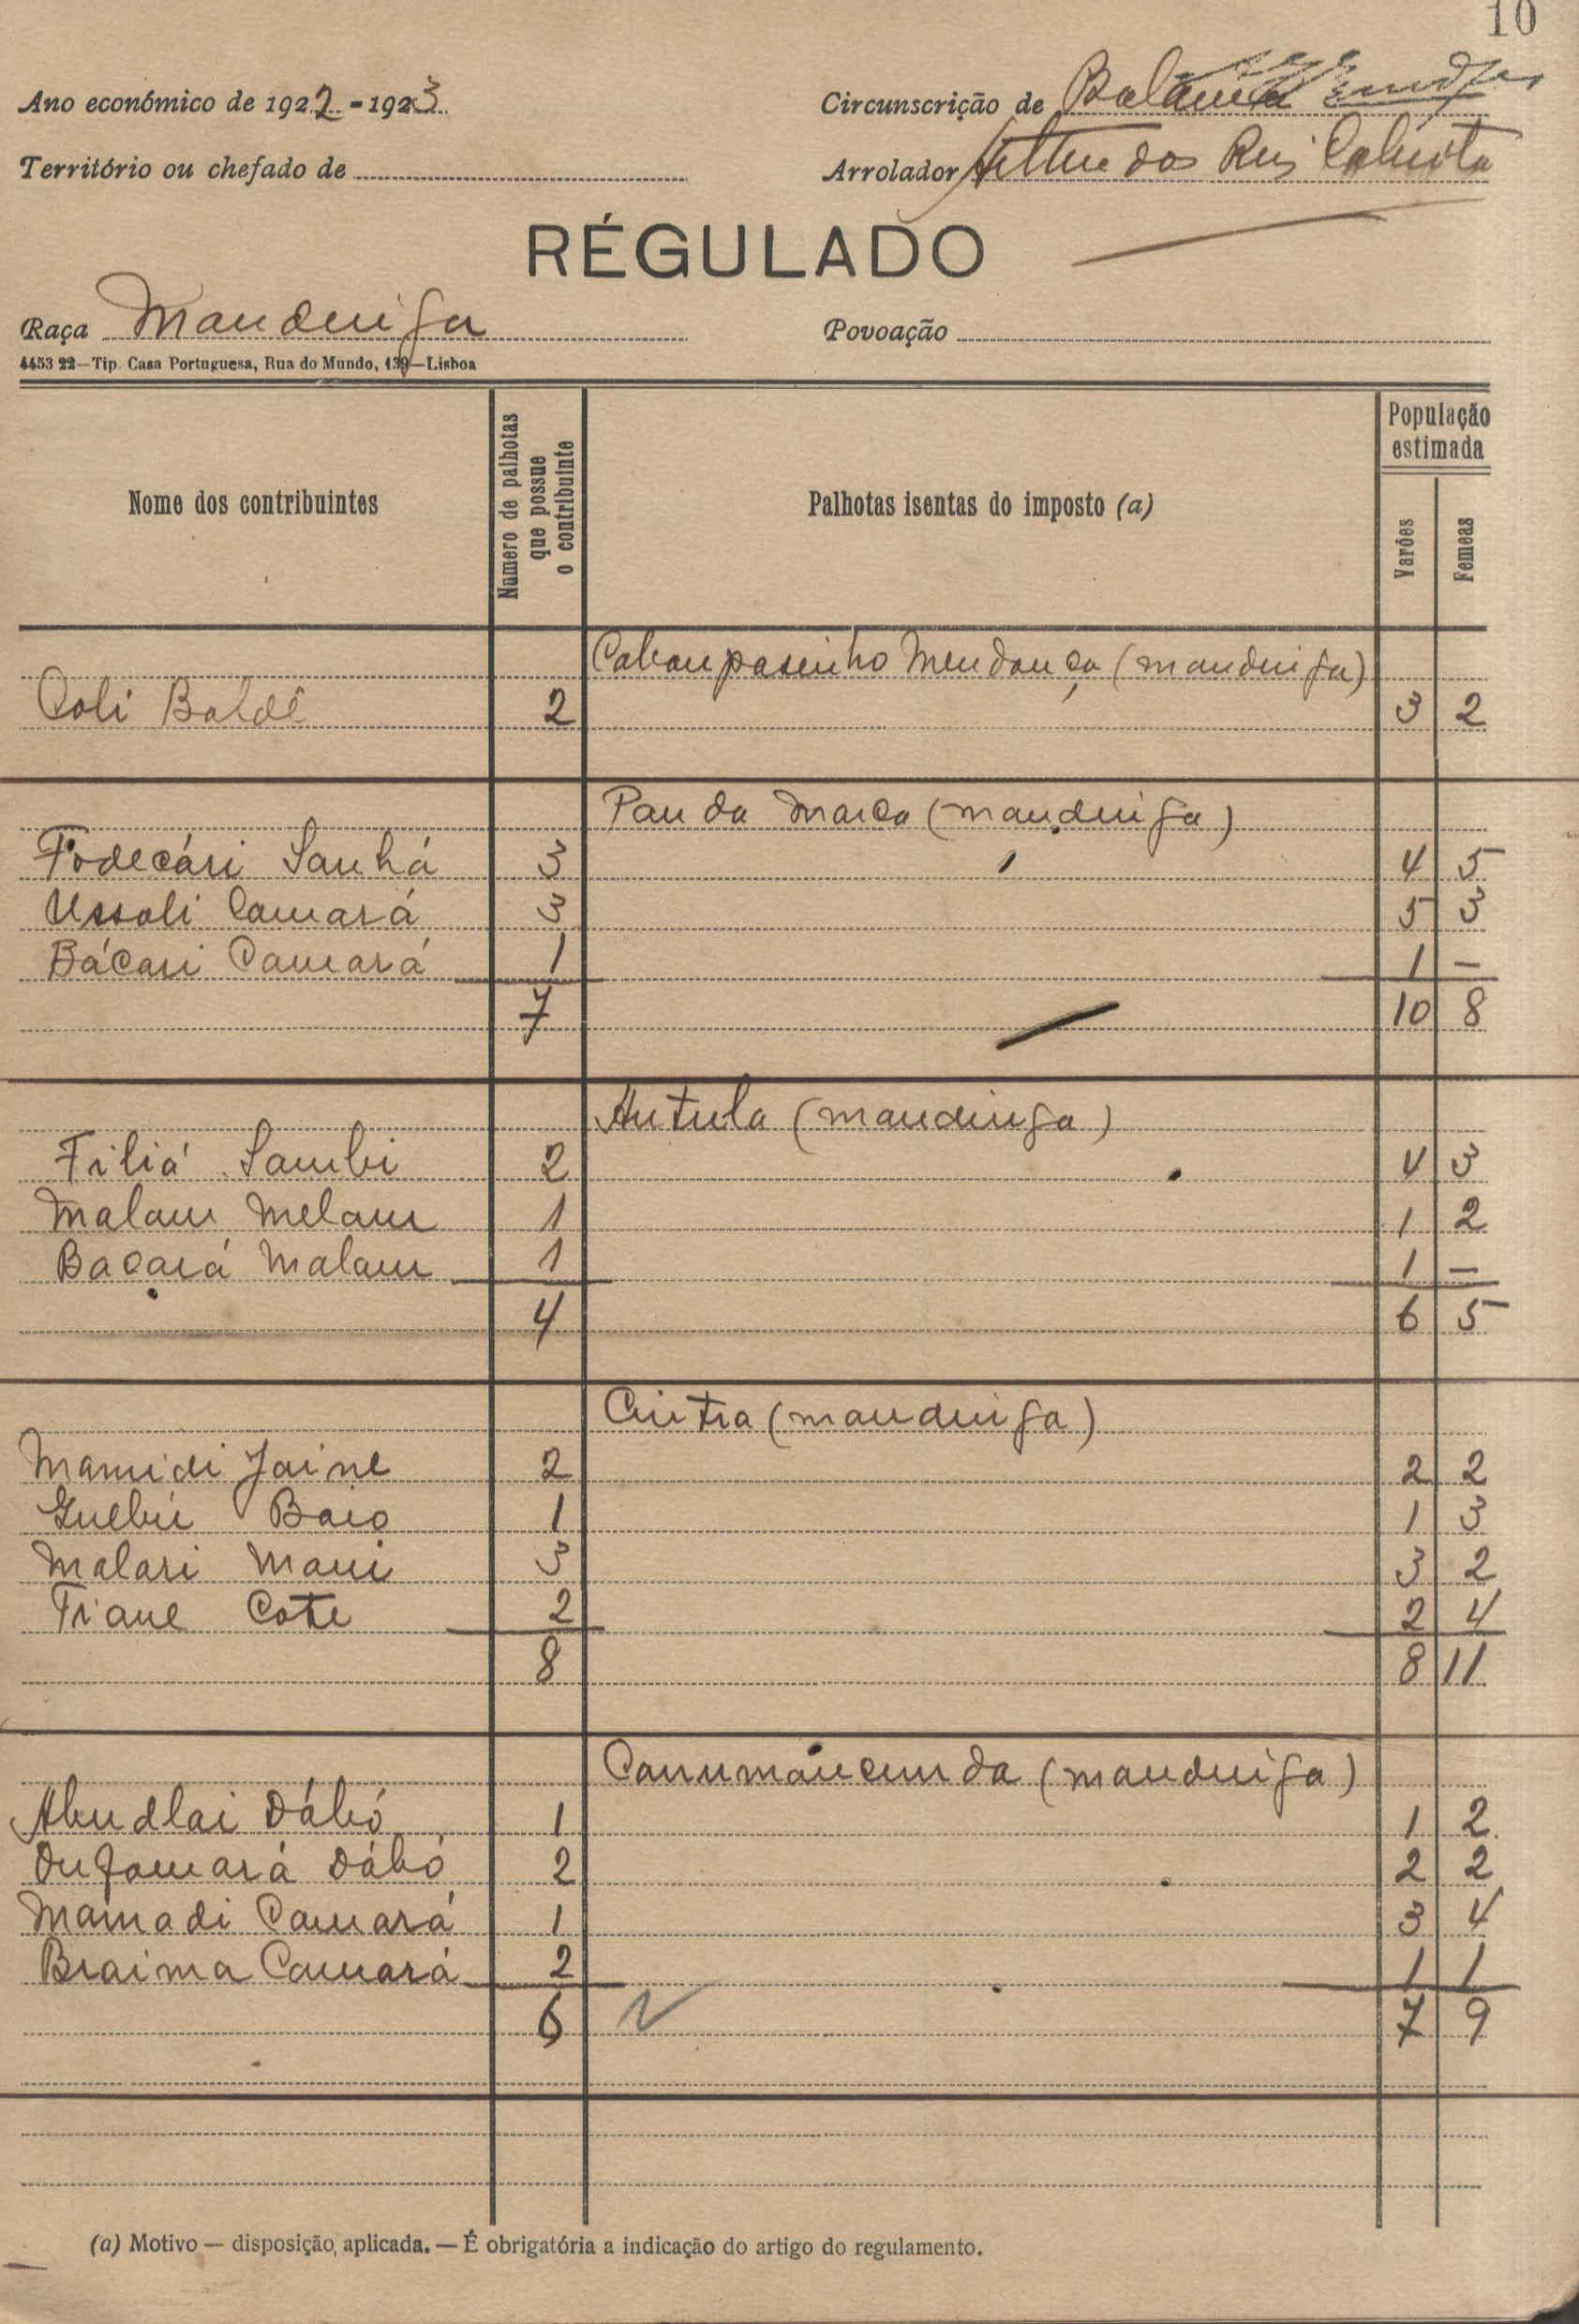 10
Ano económico de 1922-1923
Circunscrição de Balanta
Território ou chefado de
Arrolador dos Reis
RÉGULADO
Raça Mandinga
Povoação
4453 22—Tip. Casa Portuguesa, Rua do Mundo, 139—Lisboa
Nome dos contribuintes
Numero de palhotas que possue o contribuinte
Palhotas isentas do imposto (a)
População estimada
Varões
Femeas
Mendonça (mandinga)
Coli Baldé 2 3 2
Pau da Marca (mandinga)
Fodecári Sanhá 3 4 5
Ussoli Camará 3 5 3
Bácari Camará 1 1 —
7 10 8
Antula (mandinga)
Filiá Sambi 2 4 3
Malam Melam 1 1 2
Bacará Malam 1 1 —
4 6 5
Cintra (mandinga)
Mamidi Jaine 2 2 2
Guebú Baio 1 1 3
Malari Mani 3 3 2
Fiane Cote 2 2 4
8 8 11
Canumáncunda (mandinga)
Abudlai Dábó 1 1 2
Dufamará Dábó 2 2 2
Mamadi Camará 1 3 4
Braima Camará 2 1 1
6 7 9
(a) Motivo — disposição aplicada. — É obrigatória a indicação do artigo do regulamento.